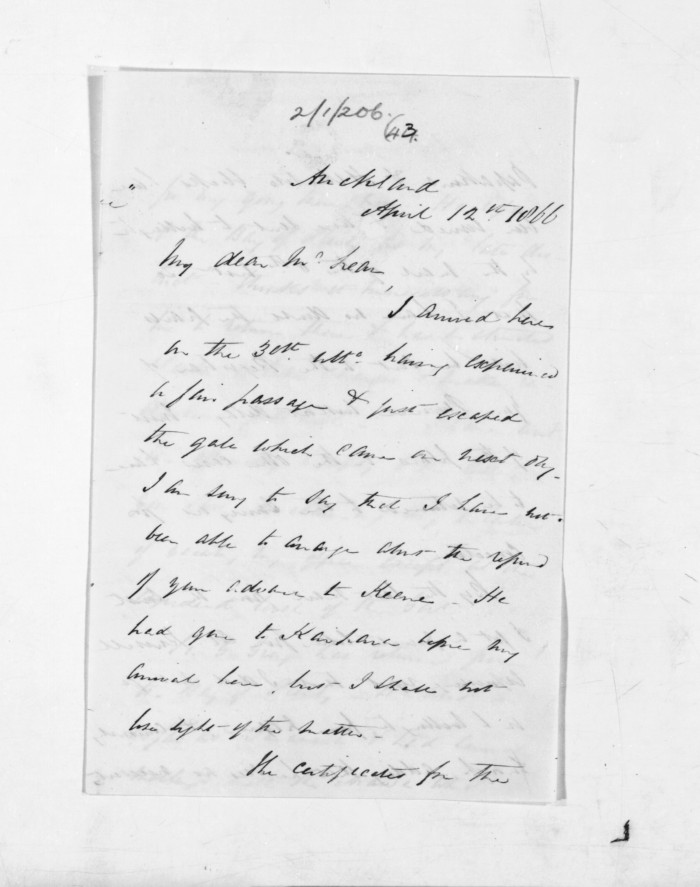 2/1/206.
(43.
Auckland
April 12th 1866
My dear McLean,
I arrived here
on the 30th ulto. having experienced
a fair passage & just escaped
the gale which came on next day.
I am sorry to say that I have not
been able to arrange about the refund
of your advance to Keene. He
had gone to Kaipara before my
arrival here, but I shall not
lose sight of the matter.
The certificates for the